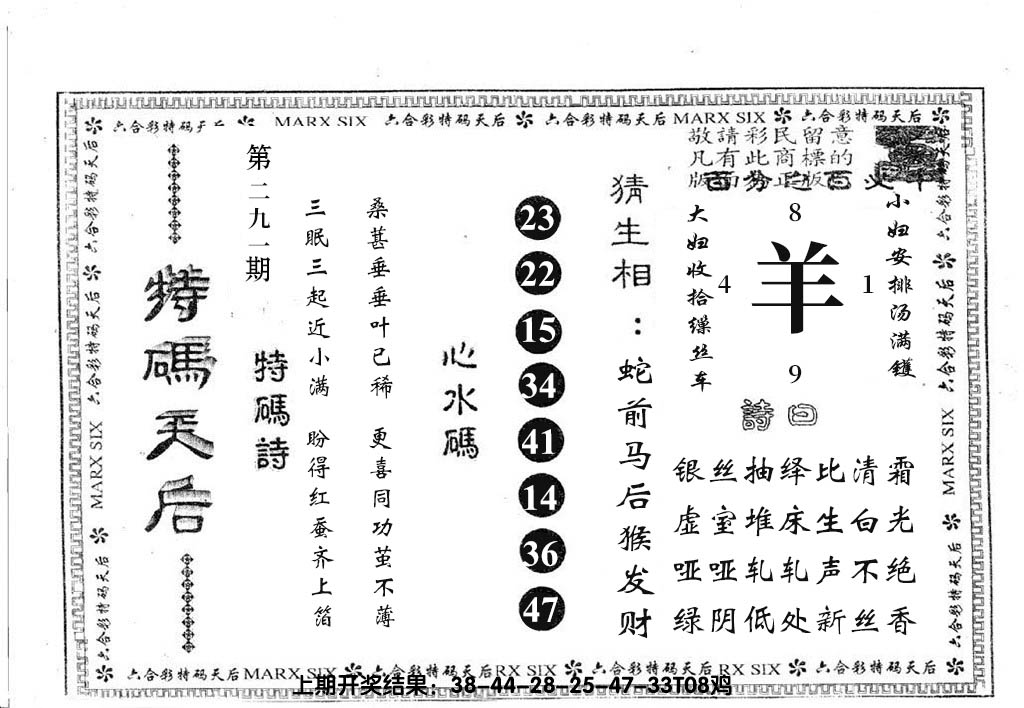 六合彩特码天后 MARX SIX 六合彩特码天后 六合彩特码天后 MARX SIX 六合彩特码天后
六合彩特码天后 六合彩特码天后 MARX SIX 六合彩特码天后
特碼天后
第二九一期
特碼詩
三眠三起近小满 盼得红蚕齐上箔
桑葚垂垂叶已稀 更喜同功茧不薄
心水碼
23
22
15
34
41
14
36
47
猜生相：蛇前马后猴发财
敬請彩民留意
凡有此商標的
大妇收拾缲丝车
8
4 羊 1
9
小妇安排汤满镬
詩曰
银丝抽绎比清霜
虚室堆床生白光
哑哑轧轧声不绝
绿阴低处新丝香
六合彩特码天后 六合彩特码天后 MARX SIX 六合彩特码天后
六合彩特码天后 MARX SIX 六合彩特码天后 RX SIX 六合彩特码天后 RX SIX 六合彩特码天后
上期开奖结果：38-44-28-25-47-33T08鸡